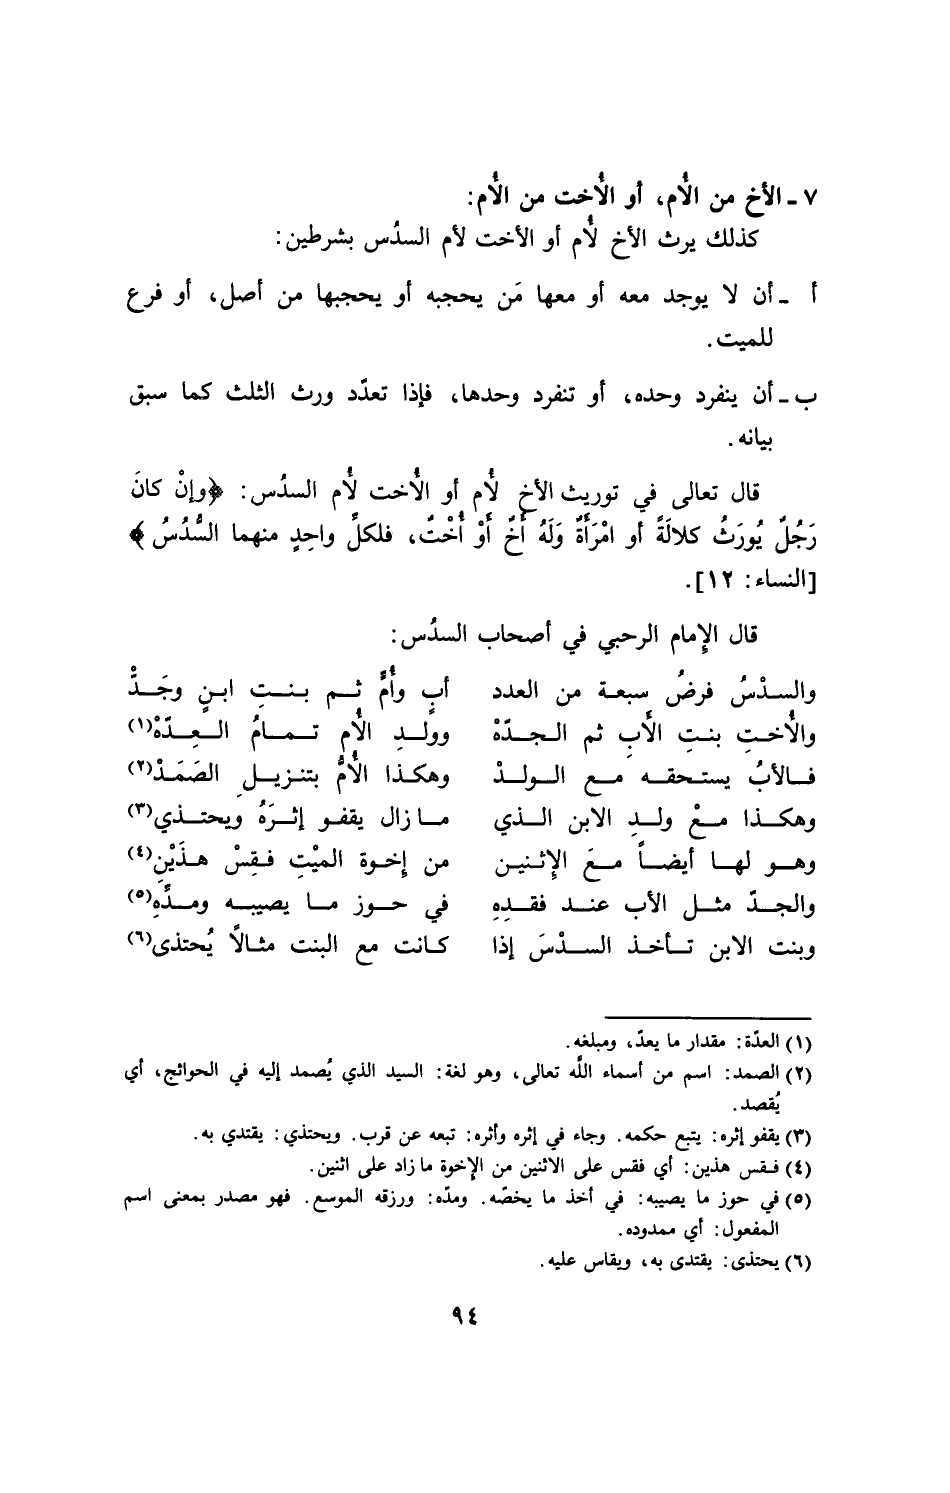 ٧ - الأخ من الأُم، أو الأُخت من الأُم:
كذلك يرث الأخ لأُم أو الأخت لأم السدُس بشرطين:
أ - أن لا يوجد معه أو معها مَن يحجبه أو يحجبها من أصل، أو فرع
للميت.
ب - أن ينفرد وحده، أو تنفرد وحدها، فإذا تعدّد ورث الثلث كما سبق
بيانه.
قال تعالى في توريث الأخ لأُم أو الأُخت لأُم السدُس: ﴿وإنْ كانَ
رَجُلٌ يُورَثُ كلالَةً أو امْرَأَةٌ وَلَهُ أَخٌ أَوْ أُخْتٌ، فلكلِّ واحِدٍ منهما السُّدُسُ﴾
[النساء: ١٢].
قال الإمام الرحبي في أصحاب السدُس:
والسدْسُ فرضُ سبعة من العدد أبٍ وأُمٍّ ثم بنتِ ابنٍ وجَدّْ
والأُختِ بنتِ الأَبِ ثم الجدّهْ وولدِ الأُم تمامُ العِدّهْ(١)
فالأبُ يستحقه مع الولدْ وهكذا الأُمُّ بتنزيلِ الصَمَدْ(٢)
وهكذا معْ ولدِ الابن الذي ما زال يقفو إثرَهُ ويحتذي(٣)
وهو لها أيضاً معَ الإثنين من إخوة الميْتِ فقِسْ هذَيْنِ(٤)
والجدّ مثل الأب عند فقدِهِ في حوز ما يصيبه ومدِّهِ(٥)
وبنت الابن تأخذ السدْسَ إذا كانت مع البنت مثالًا يُحتذى(٦)
(١) العدّة: مقدار ما يعدّ، ومبلغه.
(٢) الصمد: اسم من أسماء الله تعالى، وهو لغة: السيد الذي يُصمد إليه في الحوائج، أي
يُقصد.
(٣) يقفو إثره: يتبع حكمه. وجاء في إثره وأثره: تبعه عن قرب. ويحتذي: يقتدي به.
(٤) فقس هذين: أي فقس على الاثنين من الإخوة ما زاد على اثنين.
(٥) في حوز ما يصيبه: في أخذ ما يخصّه. ومدّه: ورزقه الموسع. فهو مصدر بمعنى اسم
المفعول: أي ممدوده.
(٦) يحتذى: يقتدى به، ويقاس عليه.
٩٤